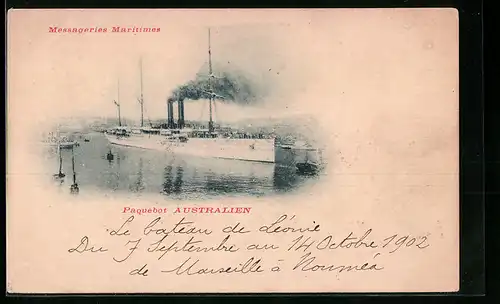 Messageries Maritimes
Paquebot AUSTRALIEN
Le bateau de Léonie
Du 7 Septembre au 14 Octobre 1902
de Marseille à Nouméa